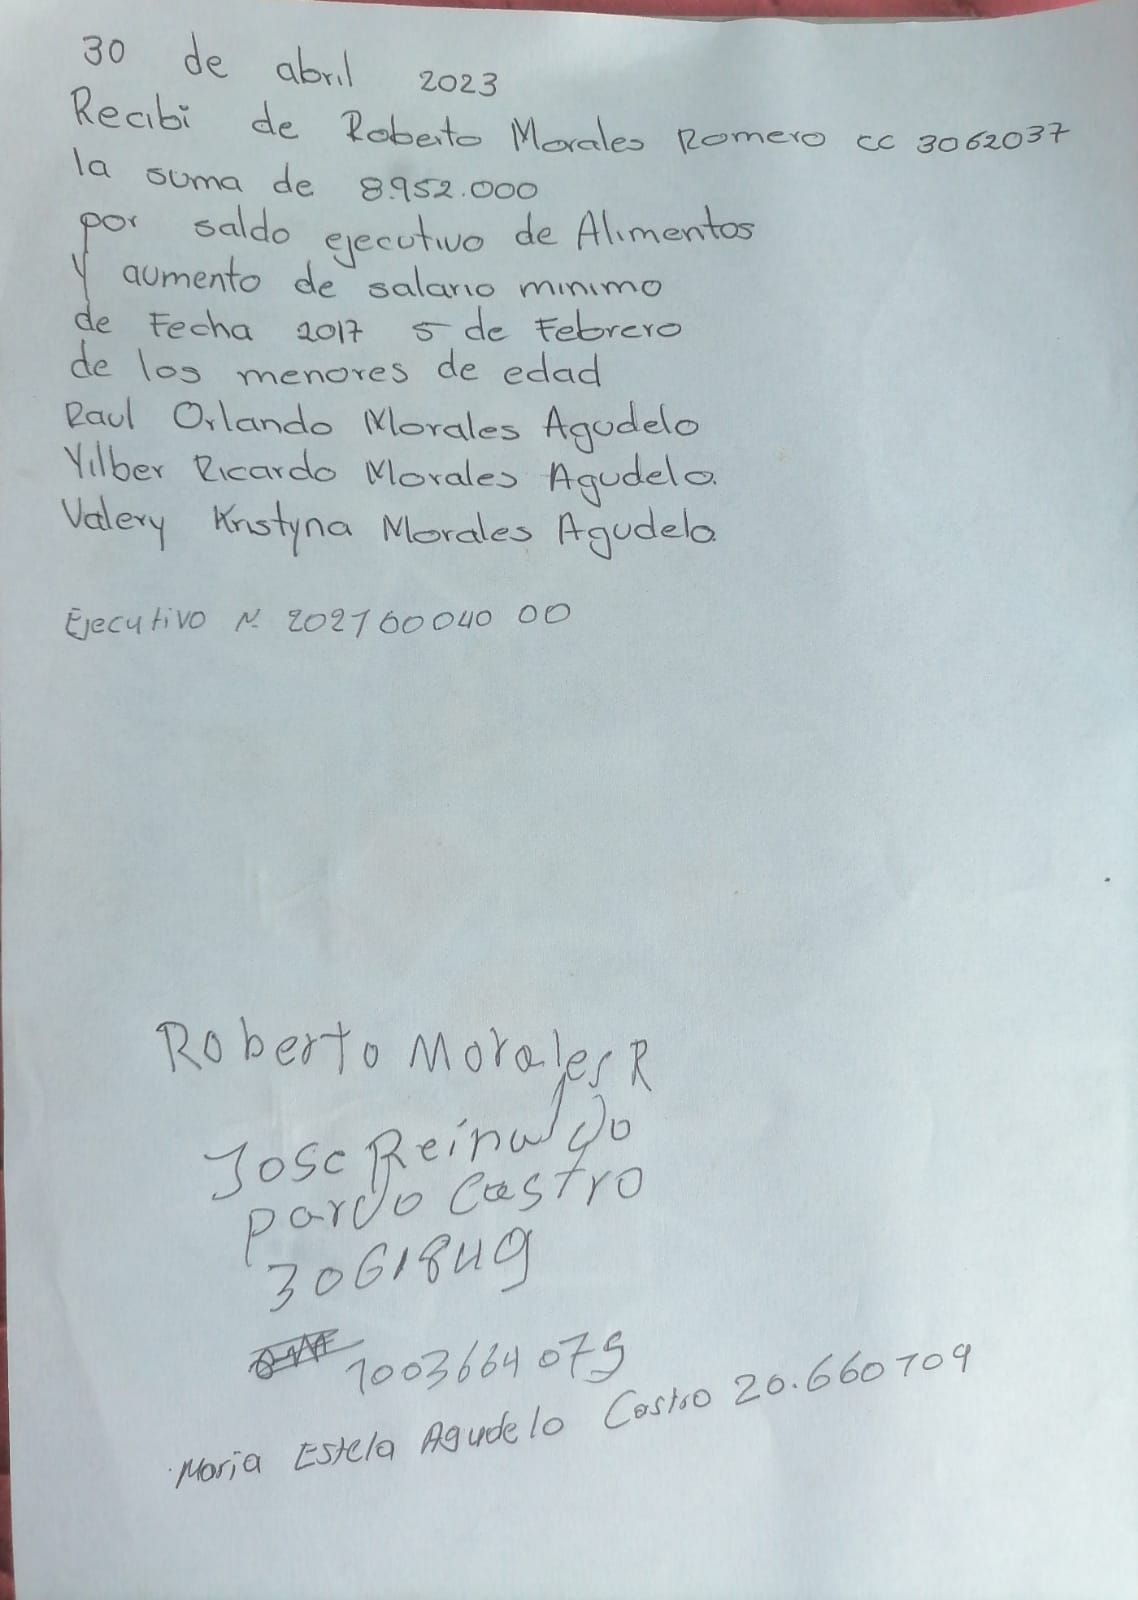 30 de abril 2023
Recibi de Roberto Morales Romero cc 3062037
la suma de 8.952.000
por saldo ejecutivo de Alimentos
y aumento de salario minimo
de Fecha 2017 5 de Febrero
de los menores de edad
Raul Orlando Morales Agudelo
Yilber Ricardo Morales Agudelo.
Valery Kristyna Morales Agudelo.
Ejecutivo N. 202160040 00
Roberto Morales R
Jose Reinaldo
pardo Castro
3061849
1003664079
Maria Estela Agudelo Castro 20.660709